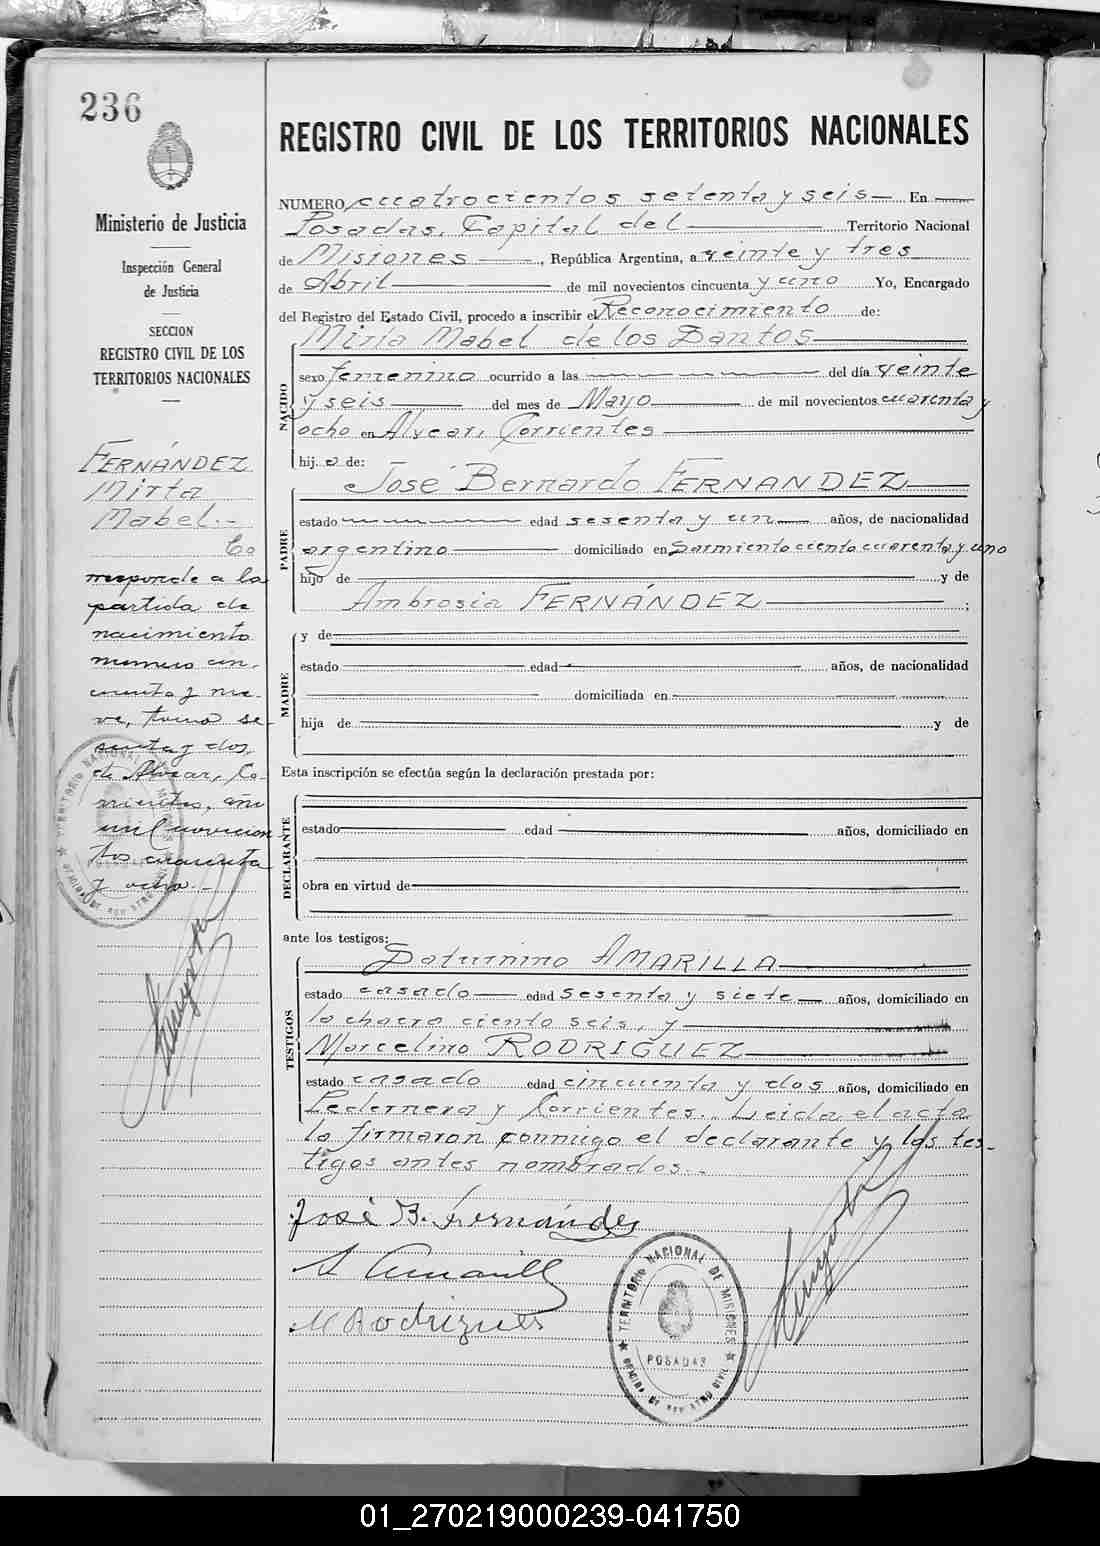 236
Ministerio de Justicia
Inspección General
de Justicia
SECCION
REGISTRO CIVIL DE LOS
TERRITORIOS NACIONALES
FERNÁNDEZ
Mirta
Mabel.-
Co
rresponde a la
partida de
nacimiento
número cin-
cuenta y nue-
ve, tomo se-
senta y dos,
de Alvear, Co-
rrientes, año
mil novecien
tos cuarenta
y ocho.-
REGISTRO CIVIL DE LOS TERRITORIOS NACIONALES
NUMERO cuatrocientos setenta y seis — En
Posadas, Capital del Territorio Nacional
de Misiones, República Argentina, a veinte y tres
de Abril de mil novecientos cincuenta y uno Yo, Encargado
del Registro del Estado Civil, procedo a inscribir el Reconocimiento de:
NACIDO
Mirta Mabel de los Santos
sexo femenino ocurrido a las del día veinte
y seis del mes de Mayo de mil novecientos cuarenta y
ocho en Alvear, Corrientes
hij. a de:
PADRE
José Bernardo FERNANDEZ
estado edad sesenta y un años, de nacionalidad
argentino domiciliado en Sarmiento ciento cuarenta y uno
hijo de y de
Ambrosia FERNÁNDEZ ;
MADRE
y de
estado edad años, de nacionalidad
domiciliada en
hija de y de
Esta inscripción se efectúa según la declaración prestada por:
DECLARANTE
estado edad años, domiciliado en
obra en virtud de
ante los testigos:
TESTIGOS
Saturnino AMARILLA
estado casado edad sesenta y siete años, domiciliado en
la chacra ciento seis, y
Marcelino RODRIGUEZ
estado casado edad cincuenta y dos años, domiciliado en
Pedernera y Corrientes. Leida el acta
la firmaron conmigo el declarante y los tes-
tigos antes nombrados.-
José B. Fernández
S Amarilla
M Rodriguez
TERRITORIO NACIONAL DE MISIONES
POSADAS
OFICINA DE REGISTRO CIVIL
01_270219000239-041750